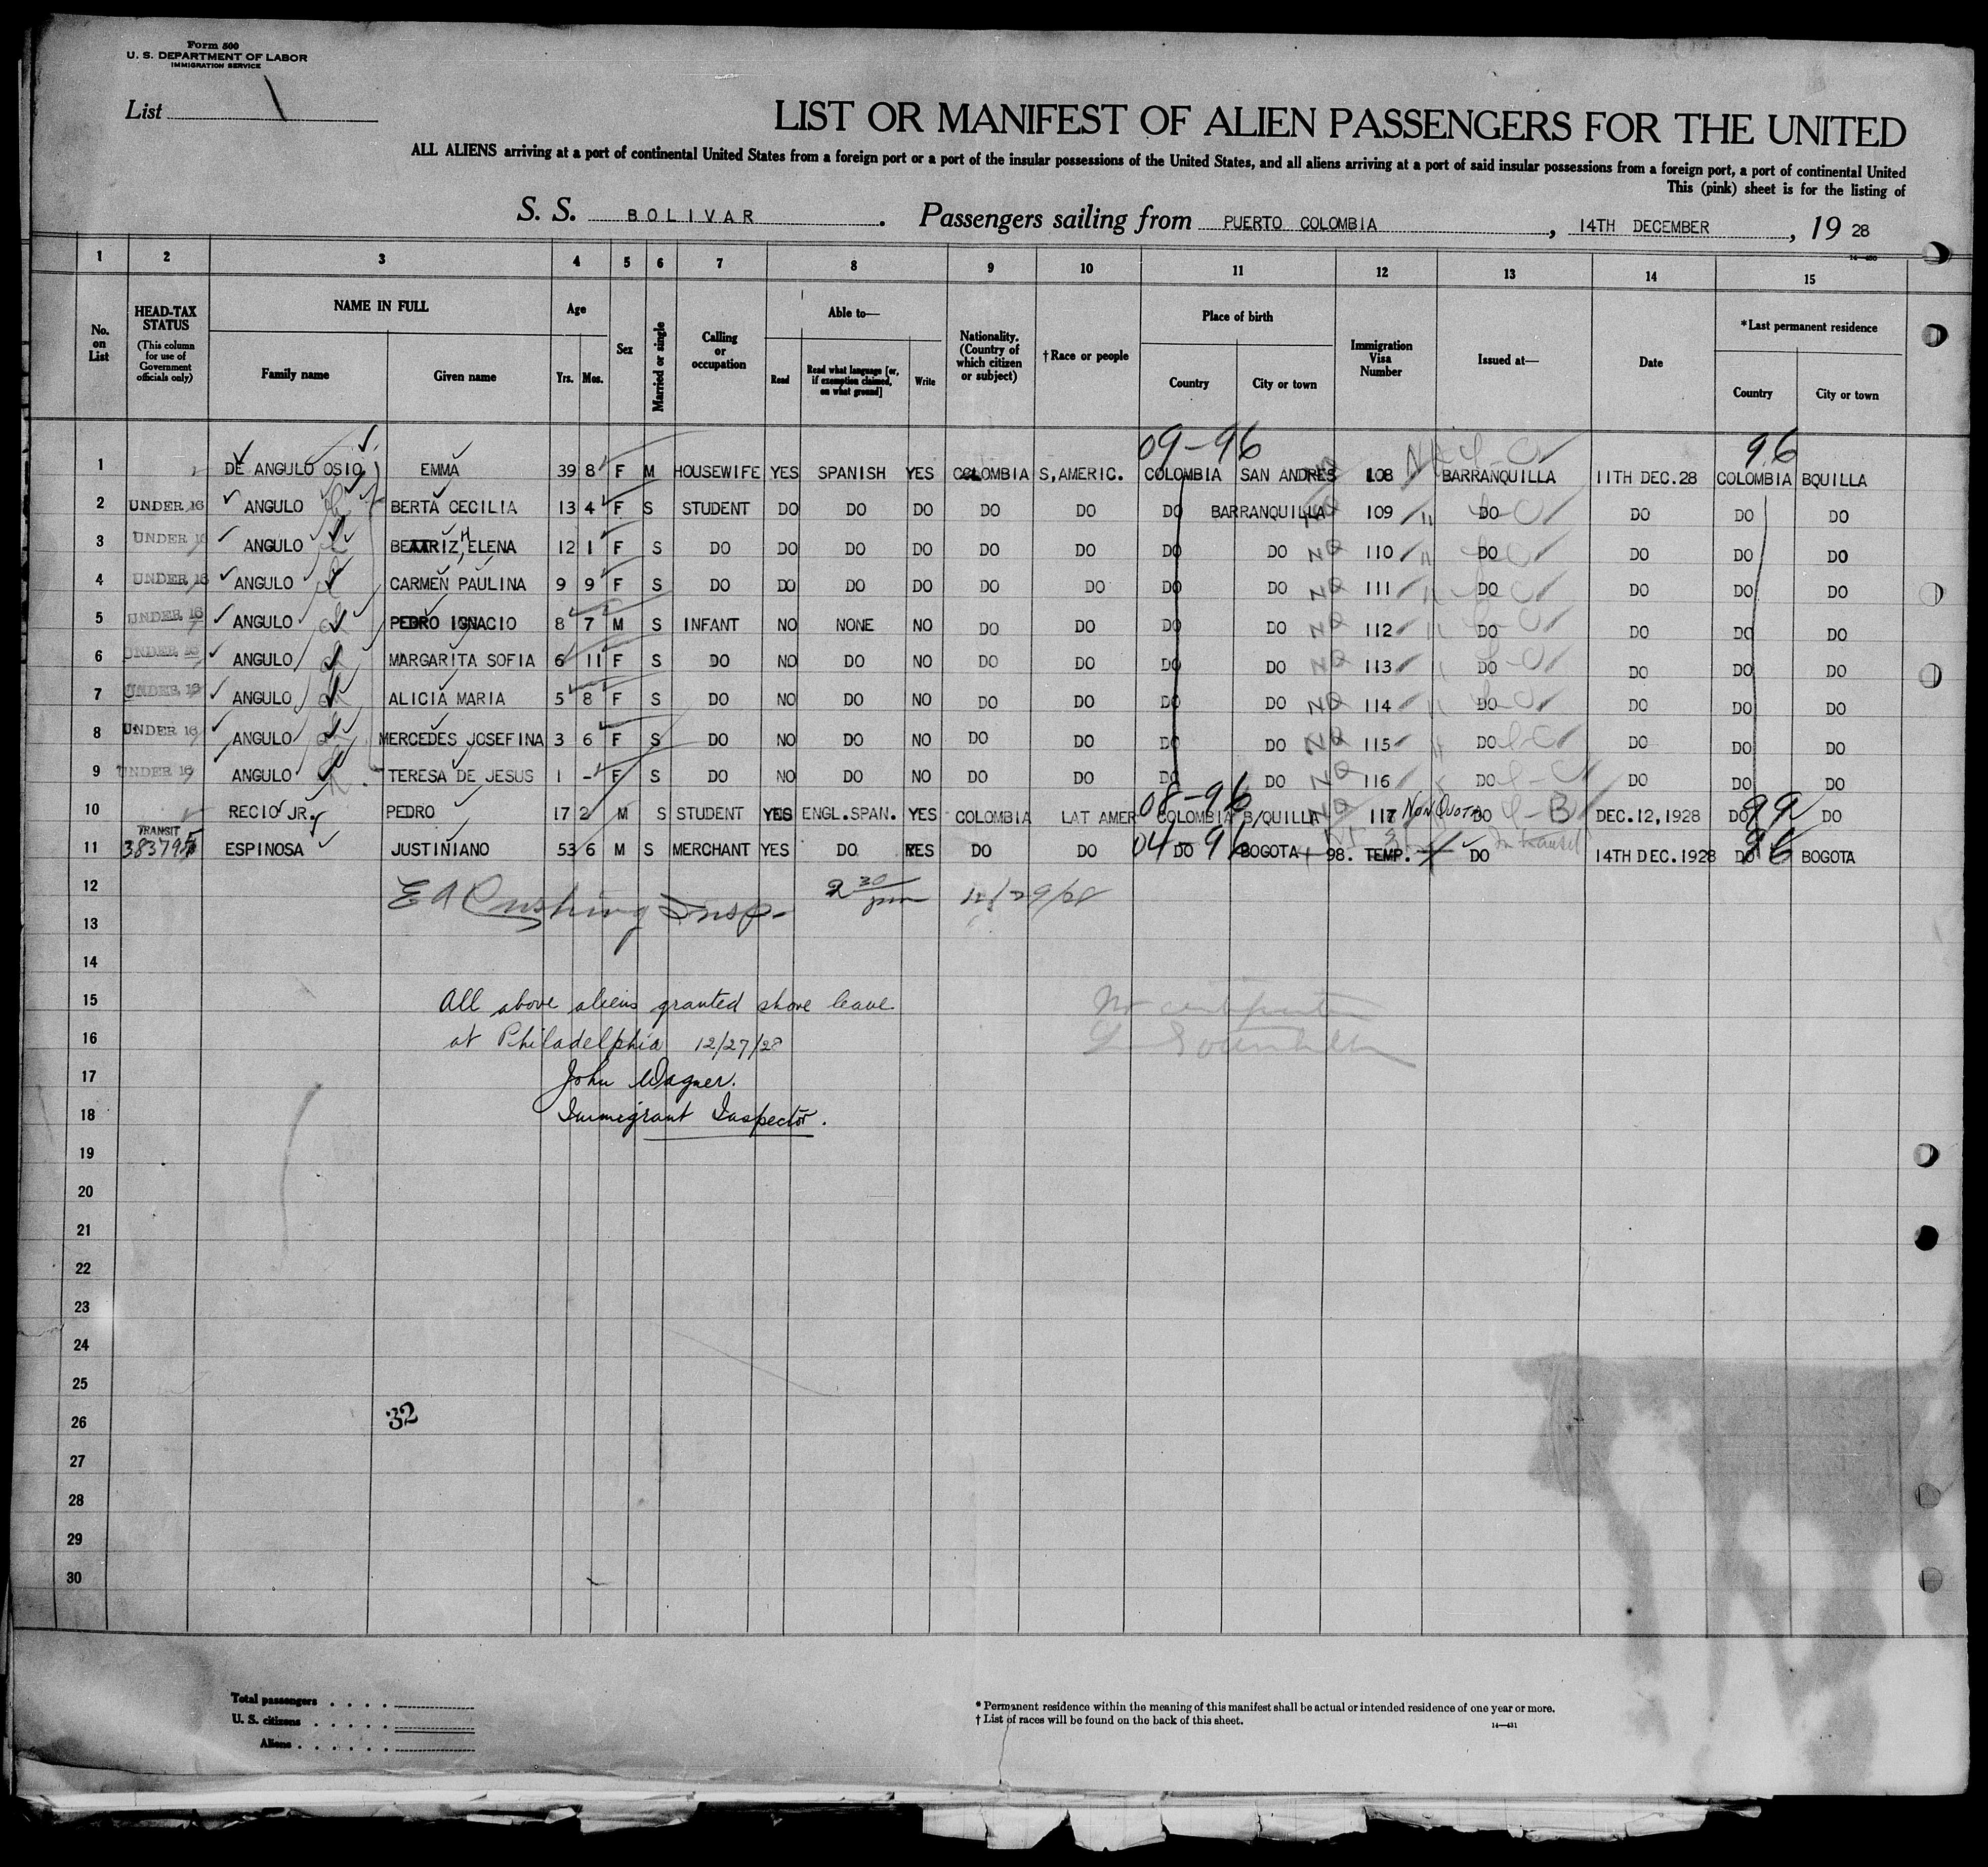 Form 500
U. S. DEPARTMENT OF LABOR
IMMIGRATION SERVICE
List
LIST OR MANIFEST OF ALIEN PASSENGERS FOR THE UNITED
ALL ALIENS arriving at a port of continental United States from a foreign port or a port of the insular possessions of the United States, and all aliens arriving at a port of said insular possessions from a foreign port, a port of continental United
This (pink) sheet is for the listing of
S. S. BOLIVAR. Passengers sailing from PUERTO COLOMBIA, 14TH DECEMBER, 19 28
1 2 3 4 5 6 7 8 9 10 11 12 13 14 15
No. on List
HEAD-TAX STATUS (This column for use of Government officials only)
NAME IN FULL
Family name Given name
Age
Yrs. Mos.
Sex
Married or single
Calling or occupation
Able to—
Read Read what language [or, if exemption claimed, on what ground] Write
Nationality. (Country of which citizen or subject)
† Race or people
Place of birth
Country City or town
Immigration Visa Number
Issued at—
Date
*Last permanent residence
Country City or town
09-96 96
1 DE ANGULO OSIO EMMA 39 8 F M HOUSEWIFE YES SPANISH YES COLOMBIA S,AMERIC. COLOMBIA SAN ANDRES 108 BARRANQUILLA 11TH DEC.28 COLOMBIA BQUILLA
2 UNDER 16 ANGULO BERTA CECILIA 13 4 F S STUDENT DO DO DO DO DO DO BARRANQUILLA NQ 109 " DO DO DO DO
3 UNDER 16 ANGULO BEATRIZ, HELENA 12 1 F S DO DO DO DO DO DO DO DO NQ 110 " DO DO DO DO
4 UNDER 16 ANGULO CARMEN PAULINA 9 9 F S DO DO DO DO DO DO DO DO NQ 111 " DO DO DO DO
5 UNDER 16 ANGULO PEDRO IGNACIO 8 7 M S INFANT NO NONE NO DO DO DO DO NQ 112 " DO DO DO DO
6 UNDER 16 ANGULO MARGARITA SOFIA 6 11 F S DO NO DO NO DO DO DO DO NQ 113 " DO DO DO DO
7 UNDER 16 ANGULO ALICIA MARIA 5 8 F S DO NO DO NO DO DO DO DO NQ 114 " DO DO DO DO
8 UNDER 16 ANGULO MERCEDES JOSEFINA 3 6 F S DO NO DO NO DO DO DO DO NQ 115 " DO DO DO DO
9 UNDER 16 ANGULO TERESA DE JESUS 1 - F S DO NO DO NO DO DO DO DO NQ 116 " DO DO DO DO
08-96 99
10 RECIO JR. PEDRO 17 2 M S STUDENT YES ENGL.SPAN. YES COLOMBIA LAT AMER COLOMBIA B/QUILLA NQ 117 Non Quota DO DEC.12,1928 DO DO
TRANSIT
04-96 96
11 ESPINOSA JUSTINIANO 53 6 M S MERCHANT YES DO YES DO DO DO BOGOTA 98. TEMP. DO In transit 14TH DEC.1928 DO BOGOTA
12 E A Cushing Insp- 2 30 pm 12/29/28
13
14
15 All above aliens granted shore leave
16 at Philadelphia 12/27/28
17 John Wagner.
18 Immigrant Inspector.
19
20
21
22
23
24
25
26 32
27
28
29
30
Total passengers
U. S. citizens
Aliens
* Permanent residence within the meaning of this manifest shall be actual or intended residence of one year or more.
† List of races will be found on the back of this sheet.
14—431